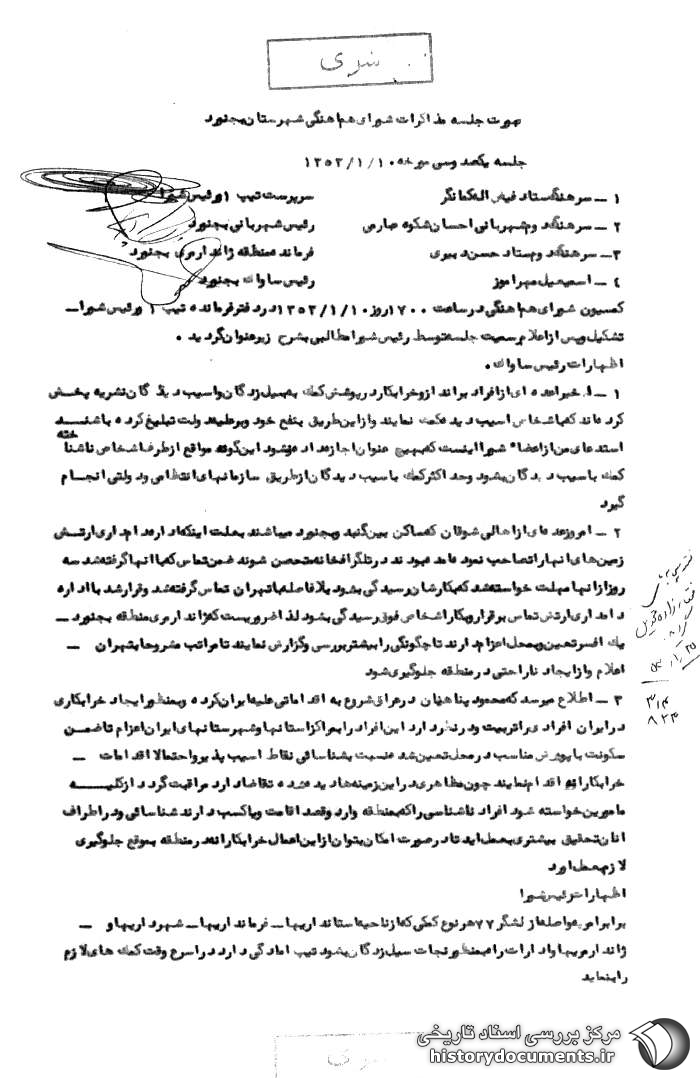 سری
صورت جلسه مذاکرات شورای هم اهنگی شهرستان بجنورد
جلسه یکصد وسی مورخه ۱۳۵۳/۱/۱۰
۱ ــ سرهنگ ستاد فیض اله کمانگر سرپرست تیپ ۱ ورئیس شورا
۲ ــ سرهنگ دوم شهربانی احسان شکوه صارمی رئیس شهربانی بجنورد
۳ــ سرهنگ دوم ستاد حسن دبیری فرمانده منطقه ژاندارمری بجنورد
۴ ــ اسمعیل مهراموز رئیس ساواک بجنورد
کمسیون شورای هم اهنگی در ساعت ۱۷۰۰ روز ۱۳۵۳/۱/۱۰ در دفتر فرمانده تیپ ۱ ورئیس شورا ــ
تشکیل وپس از اعلام رسمیت جلسه توسط رئیس شورا مطالبی بشرح زیر عنوان گردید .
اظهارات رئیس ساواک .
۱ ــ اخیرا عده ای از افراد برانداز وخرابکار در پوشش کمک به سیل زدگان واسیب دیدگان نشریه پخش
کرده اند که باشخاص اسیب دیده کمک نمایند واز این طریق بنفع خود وبرعلیه دولت تبلیغ کرده باشند
استدعای من از اعضاء شورا اینست که بهیچ عنوان اجازه داده نشود این گونه مواقع از طرف اشخاص ناشناخته
کمک باسیب دیدگان بشود وحداکثر کمک باسیب دیدگان از طریق سازمانهای انتظامی ودولتی انجام
گیرد
۲ ــ امروز عده ای از اهالی شوقان که ساکن بین گنبد وبجنورد میباشند بعلت اینکه اداره دامداری ارتش
زمین های انها را تصاحب نموده امده بودند در تلگرافخانه متحصن شوند ضمن تماس که با انها گرفته شد سه
روز از انها مهلت خواسته شد که بکارشان رسیدگی بشود بلافاصله با تهران تماس گرفته شد وقرار شد با اداره
دامداری ارتش تماس برقرار وبکار اشخاص فوق رسیدگی بشود لذا ضروریست که ژاندارمری منطقه بجنورد ــ
یک افسر تعیین وبمحل اعزام دارند تا چگونگی را بیشتر بررسی وگزارش نمایند تا مراتب مشروحا بتهران ــ
اعلام واز ایجاد ناراحتی در منطقه جلوگیری شود
۳ ــ اطلاع میرسد که محمود پناهیان در عراق شروع به اقداماتی علیه ایران کرده وبمنظور ایجاد خرابکاری
در ایران افرادی را تربیت ودر نظر دارد این افراد را بمراکز استانها وشهرستانهای ایران اعزام تا ضمن
سکونت با پوشش مناسب در محل تعیین شده نسبت بشناسائی نقاط اسیب پذیر واحتمالا اقدامات ــ
خرابکارانه اقدام نمایند چون مظاهری در این زمینه ها دیده شده تقاضا دارد مراقبت گردد از کلیه
مامورین خواسته شود افراد ناشناسی را که بمنطقه وارد وقصد اقامت ویا کسب دارند شناسائی ودر اطراف
انان تحقیق بیشتری بعمل اید تا در صورت امکان بتوان از این اعمال خرابکارانه در منطقه بموقع جلوگیری
لازم بعمل اورد
اظهارات رئیس شورا
برابر امریه واصله از لشگر ۷۷ هر نوع کمکی که از ناحیه استانداریها ــ فرمانداریها ــ شهرداریها و ــ
ژاندارمریها وادارات را بمنظور نجات سیل زدگان بشود تیپ امادگی دارد در اسرع وقت کمک های لازم
را بنماید
۳۱۴
۸۲۴
مرکز بررسی اسناد تاریخی
historydocuments.ir
سری